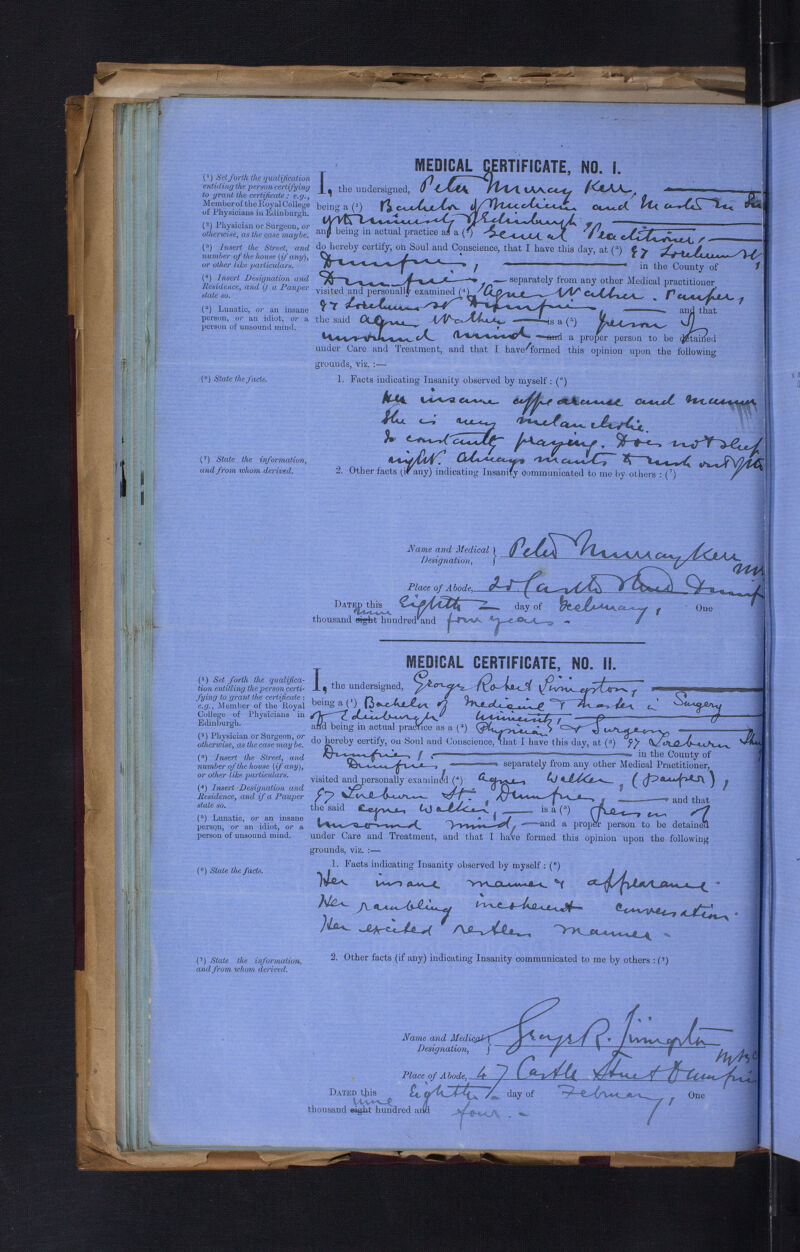 MEDICAL CERTIFICATE, NO. I.
(¹) Set forth the qualification
entitling the person certifying
to grant the certificate; e.g.,
Member of the Royal College
of Physicians in Edinburgh.
(²) Physician or Surgeon, or
otherwise, as the case may be.
(³) Insert the Street, and
number of the house (if any),
or other like particulars.
(⁴) Insert Designation and
Residence, and if a Pauper
state so.
(⁵) Lunatic, or an insane
person, or an idiot, or a
person of unsound mind.
I, the undersigned, Peter Murray Kerr,
being a (¹) Bachelor of Medicine and Master in
of the University of Edinburgh
and being in actual practice as a (²) General Practitioner,
do hereby certify, on Soul and Conscience, that I have this day, at (³) 97 Loreburn St,
Dumfries, in the County of
Dumfries, separately from any other Medical practitioner
visited and personally examined (⁴) Agnes Walker. Pauper,
97 Loreburn St Dumfries and that
the said Agnes Walker is a (⁵) person of
unsound mind and a proper person to be detained
under Care and Treatment, and that I have formed this opinion upon the following
grounds, viz. :—
(⁶) State the facts.
1. Facts indicating Insanity observed by myself : (⁶)
Her insane appearance and manner
She is very melancholic.
Is constantly praying. Does not sleep
night. Always wants to rush out of the
(⁷) State the information,
and from whom derived.
2. Other facts (if any) indicating Insanity communicated to me by others : (⁷)
Name and Medical
Designation, } Peter Murray Kerr
Place of Abode, Castle Street
DATED this Eighth day of February, One
thousand eight nine hundred and four years
MEDICAL CERTIFICATE, NO. II.
(¹) Set forth the qualifica-
tion entitling the person certi-
fying to grant the certificate :
e.g., Member of the Royal
College of Physicians in
Edinburgh.
(²) Physician or Surgeon, or
otherwise, as the case may be.
(³) Insert the Street, and
number of the house (if any),
or other like particulars.
(⁴) Insert Designation and
Residence, and if a Pauper
state so.
(⁵) Lunatic, or an insane
person, or an idiot, or a
person of unsound mind.
I, the undersigned, George Robert Livingston,
being a (¹) Bachelor of Medicine & Master in Surgery
of Edinburgh University,
and being in actual practice as a (²) Physician & Surgeon
do hereby certify, on Soul and Conscience, that I have this day, at (³) 97 Loreburn
Dumfries, in the County of
Dumfries, separately from any other Medical Practitioner,
visited and personally examined (⁴) Agnes Walker, (pauper),
97 Loreburn St. Dumfries, and that
the said Agnes Walker, is a (⁵) person of
unsound mind, and a proper person to be detained
under Care and Treatment, and that I have formed this opinion upon the following
grounds, viz. :—
(⁶) State the facts.
1. Facts indicating Insanity observed by myself : (⁶)
Her insane manner & appearance.
Her rambling incoherent conversation.
Her excited restless manner -
(⁷) State the information,
and from whom derived.
2. Other facts (if any) indicating Insanity communicated to me by others : (⁷)
Name and Medical
Designation, } George R. Livingston
Place of Abode, 47 Castle Street Dumfries
DATED this Eighth day of February, One
thousand eight nine hundred and four. -